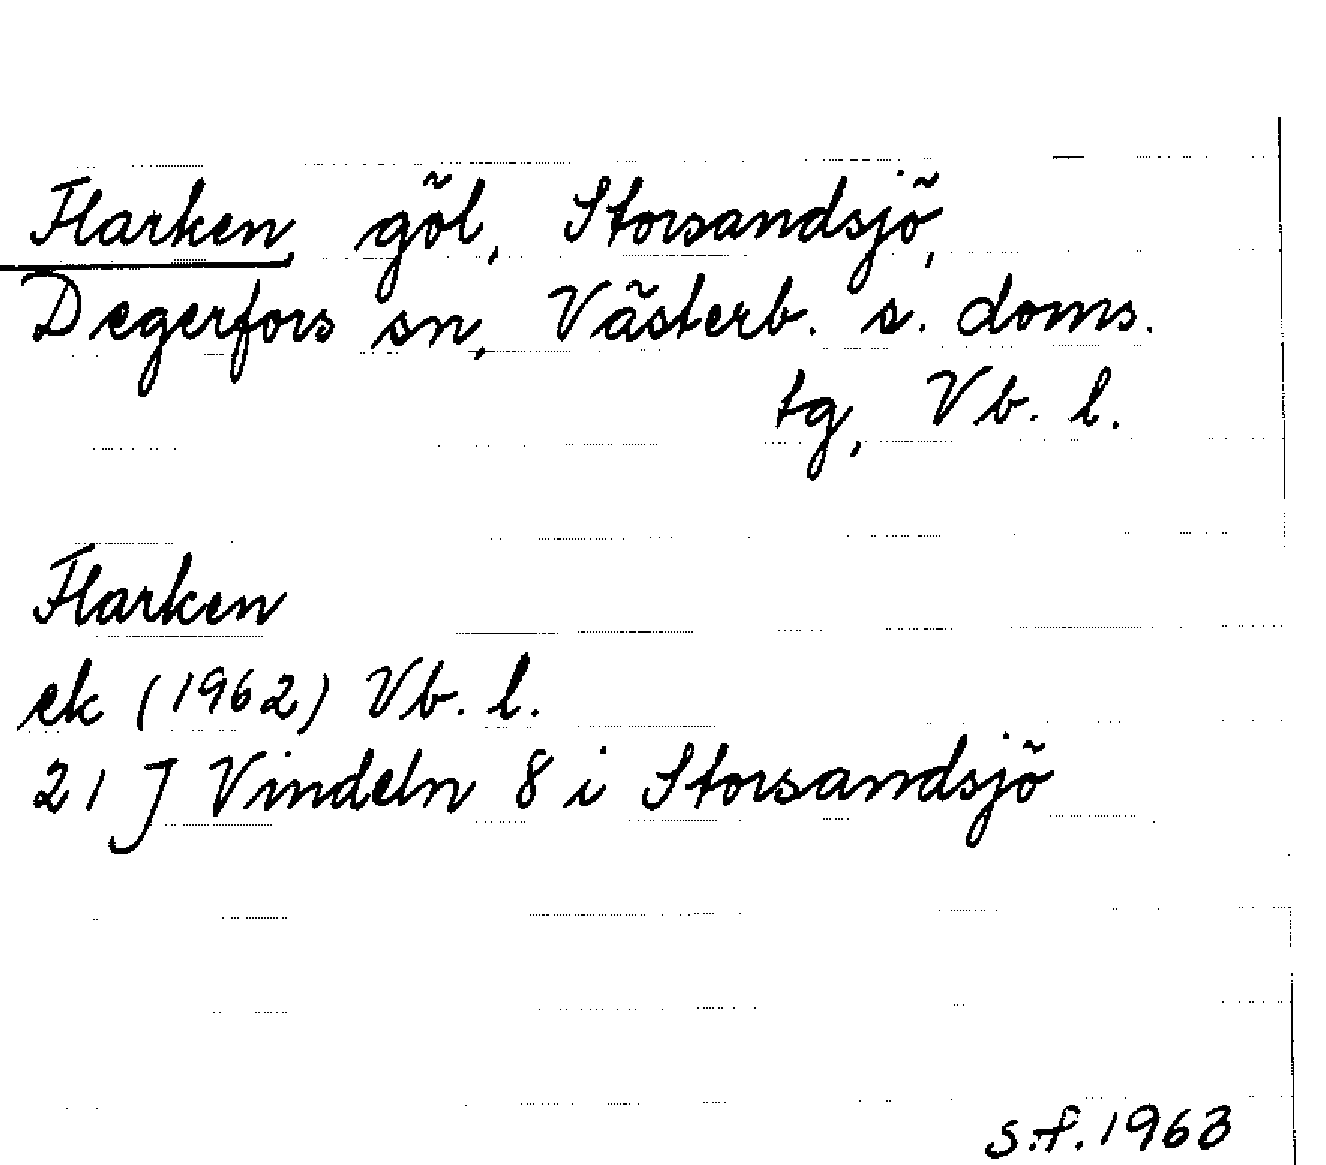 Flarken, göl, Storsandsjö,
Degerfors sn, Västerb. s. doms.
tg, Vb. l.
Flarken
ek (1962) Vb. l.
21 J Vindeln 8 i Storsandsjö
S.F. 1963